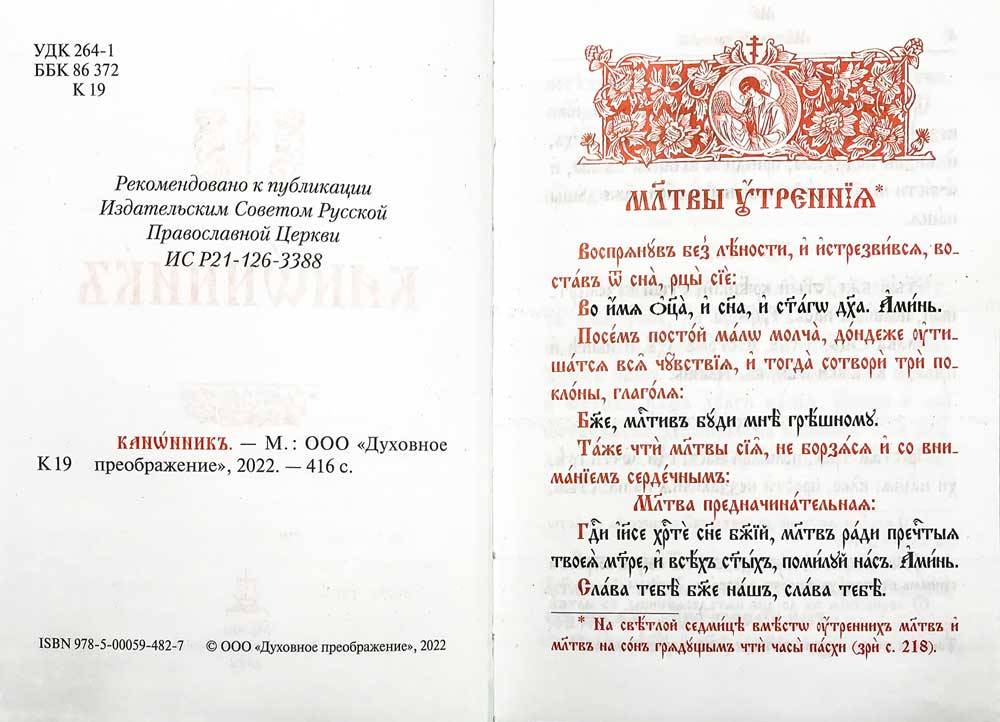 УДК 264-1
ББК 86 372
К 19
Рекомендовано к публикации
Издательским Советом Русской
Православной Церкви
ИС Р21-126-3388
Канѡ́нникъ. — М. : ООО «Духовное
К 19 преображение», 2022. — 416 с.
ISBN 978-5-00059-482-7 © ООО «Духовное преображение», 2022
Мл҃твы ᲂу҆́треннїѧ*
Воспрѧ́нувъ без̾ лѣ́ности, и҆ и҆стрезви́всѧ, во-
ста́въ ѿ сна̀, рцы̀ сїѐ:
Во и҆́мѧ ѻ҆ц҃а̀, и҆ сн҃а, и҆ ст҃а́гѡ дх҃а. А҆ми́нь.
Посе́мъ посто́й ма́лѡ молча̀, до́ндеже ᲂу҆ти-
ша́тсѧ всѧ̑ чꙋ̑вствїѧ, и҆ тогда̀ сотворѝ трѝ по-
кло́ны, глаго́лѧ:
Бж҃е, млⷭ҇тивъ бꙋ́ди мнѣ̀ грѣ́шномꙋ.
Та́же чтѝ мл҃твы сїѧ̑, не борзѧ́сѧ и҆ со вни-
ма́нїемъ серде́чнымъ:
Мл҃тва предначина́тельнаѧ:
Гдⷭ҇и і҆и҃се хрⷭ҇тѐ сн҃е бж҃їй, мл҃твъ ра́ди пречⷭ҇тыѧ
твоеѧ̀ мт҃ре, и҆ всѣ́хъ ст҃ы́хъ, поми́лꙋй на́съ. А҆ми́нь.
Сла́ва тебѣ̀ бж҃е на́шъ, сла́ва тебѣ̀.
* На свѣ́тлой седми́цѣ вмѣ́стѡ ᲂу҆́треннихъ мл҃твъ и҆
мл҃твъ на со́нъ грѧдꙋ́щымъ чтѝ часы̀ па́схи (зрѝ с. 218).